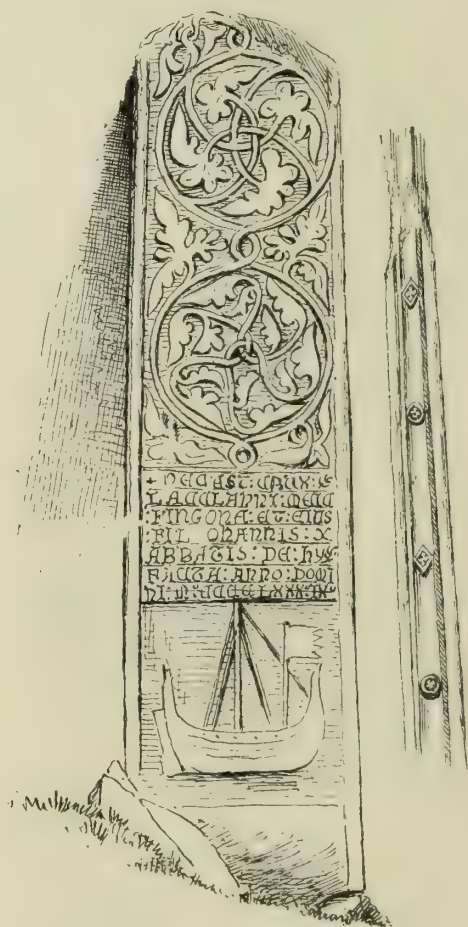 + HEC EST : CRUX :
LACCLANNI : MEIC
: FINGONA : ET : EIUS
: FIL OHANNIS : X
ABBATIS : DE : HY :
FACTA : ANNO : DOMI
NI : M : CCCC LXXX : IX :